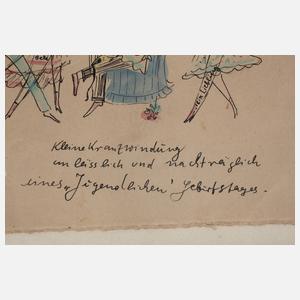 Kleine Kranzwindung
anlässlich und nachträglich
eines „Jugendlichen' Geburtstages.